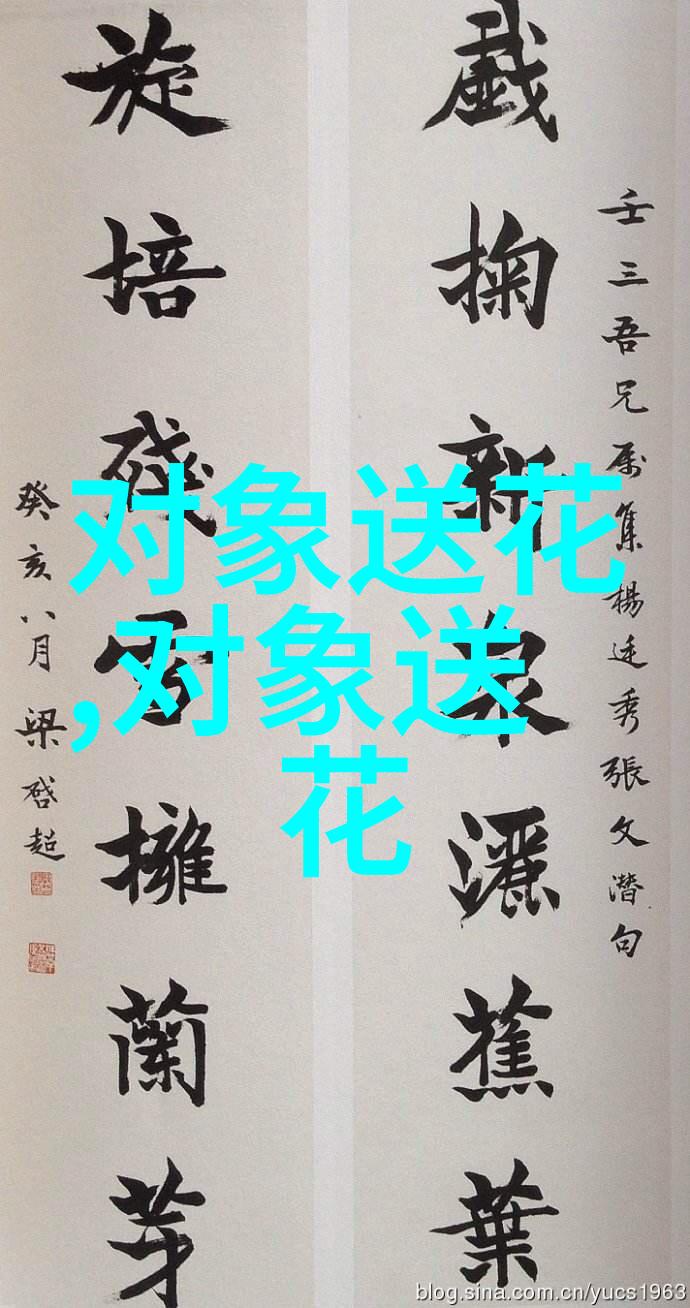 壬三吾兄属集楊廷秀張文潜句
戲掬新泉灑蕉葉
旋培殘雪擁蘭芽
癸亥八月梁啓超
对象送花
,对象送
花
blog.sina.com.cn/yucs1963